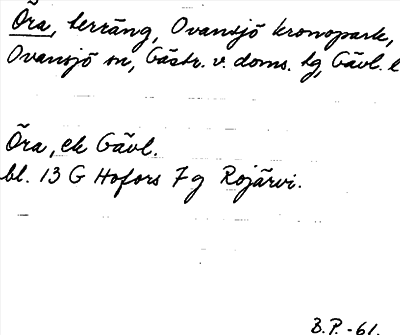 Öra, terräng, Ovansjö kronopark,
Ovansjö sn, Gästr. v. doms. tg, Gävl. l
Öra, ek Gävl.
bl. 13 G Hofors 7g Rojärvi.
B.P. -61.